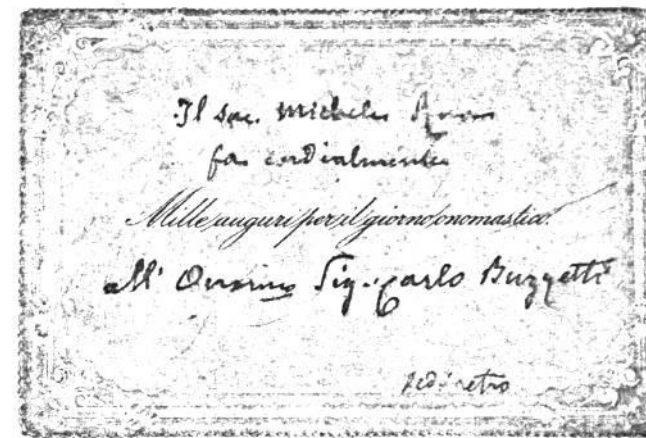 Il sac. Michele Rua
fa cordialmente
Mille auguri per il giorno onomastico.
all' Onorino Sig. Carlo Buzzetti
vedi retro